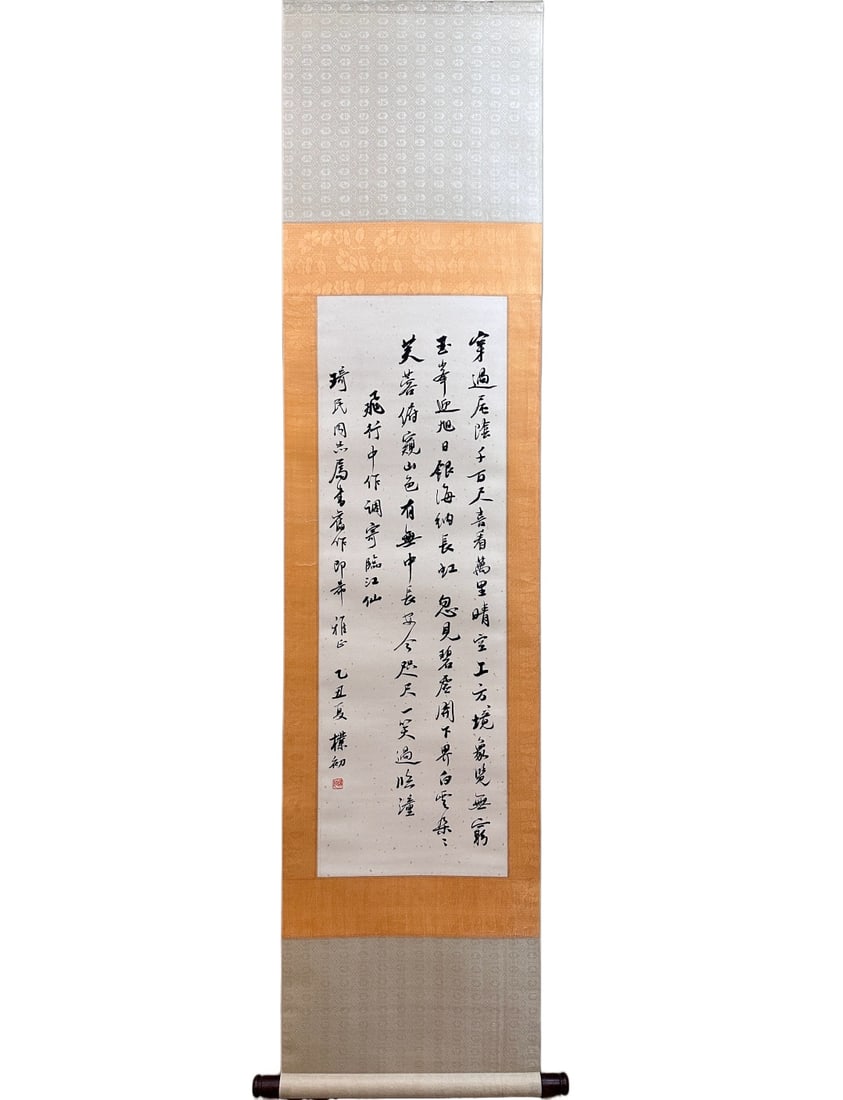 穿過层陰千百尺喜看萬里晴空上方境象覽無窮
玉峯迎旭日銀海納長虹 忽見碧虛開下界白雲朵〻
芙蓉俯窺山色有無中長安今咫尺一笑過臨潼
飛行中作調寄臨江仙
琦民同志属書舊作即希 雅正 乙丑夏 樸初